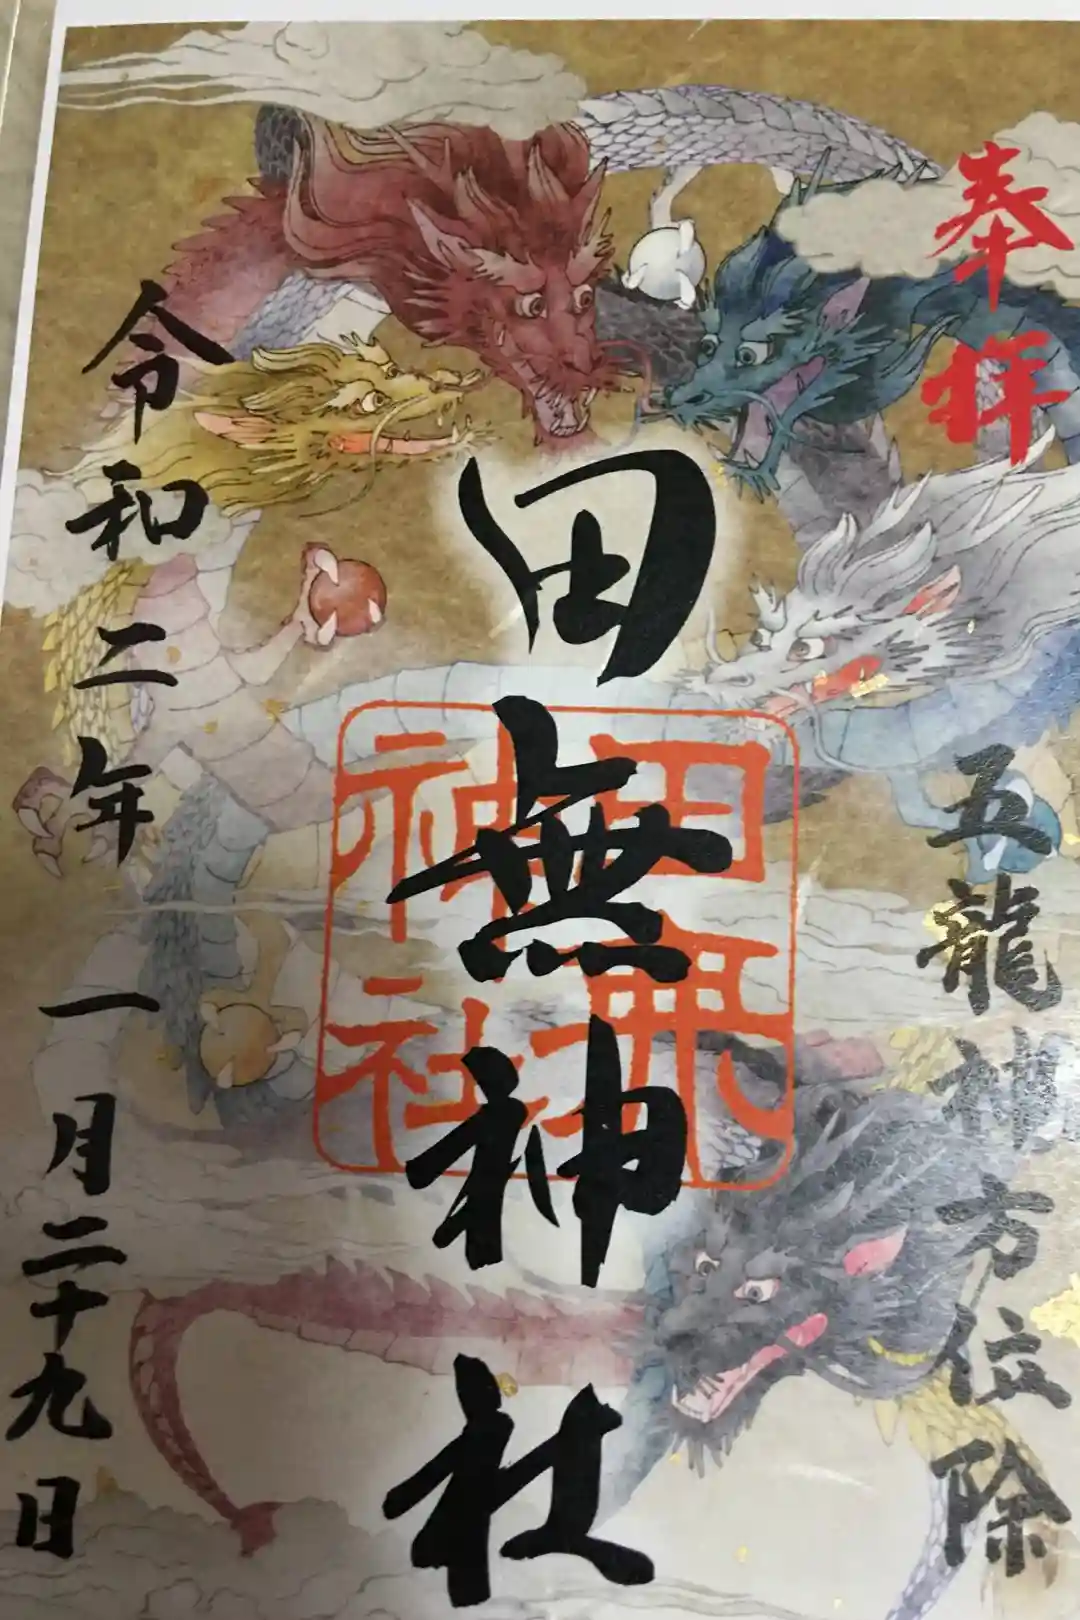 奉拝
五龍神方位除
田無神社
田無神社
令和二年一月二十九日